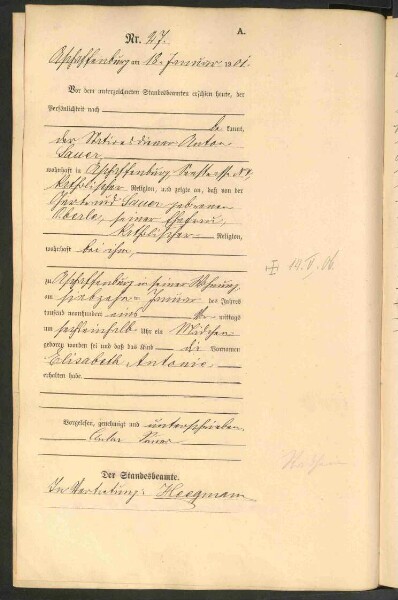 A.
Nr. 27.
Aschaffenburg am 18. Januar 1901.
Vor dem unterzeichneten Standesbeamten erschien heute, der
Persönlichkeit nach
be kannt,
der Stationsdiener Anton
Sauer,
wohnhaft in Aschaffenburg,
katholischer Religion, und zeigte an, daß von der
Gertraud Sauer geborenen
Oberle, seiner Ehefrau,
katholischer Religion,
wohnhaft bei ihm,
zu Aschaffenburg in seiner Wohnung
am siebzehn Januar des Jahres
tausend neunhundert eins Vor mittags
um sechseinhalb Uhr ein Mädchen
geboren worden sei und daß das Kind die Vornamen
Elisabeth Antonie
erhalten habe
Vorgelesen, genehmigt und unterschrieben
Anton Sauer
Der Standesbeamte.
In Vertretung: Heegmann